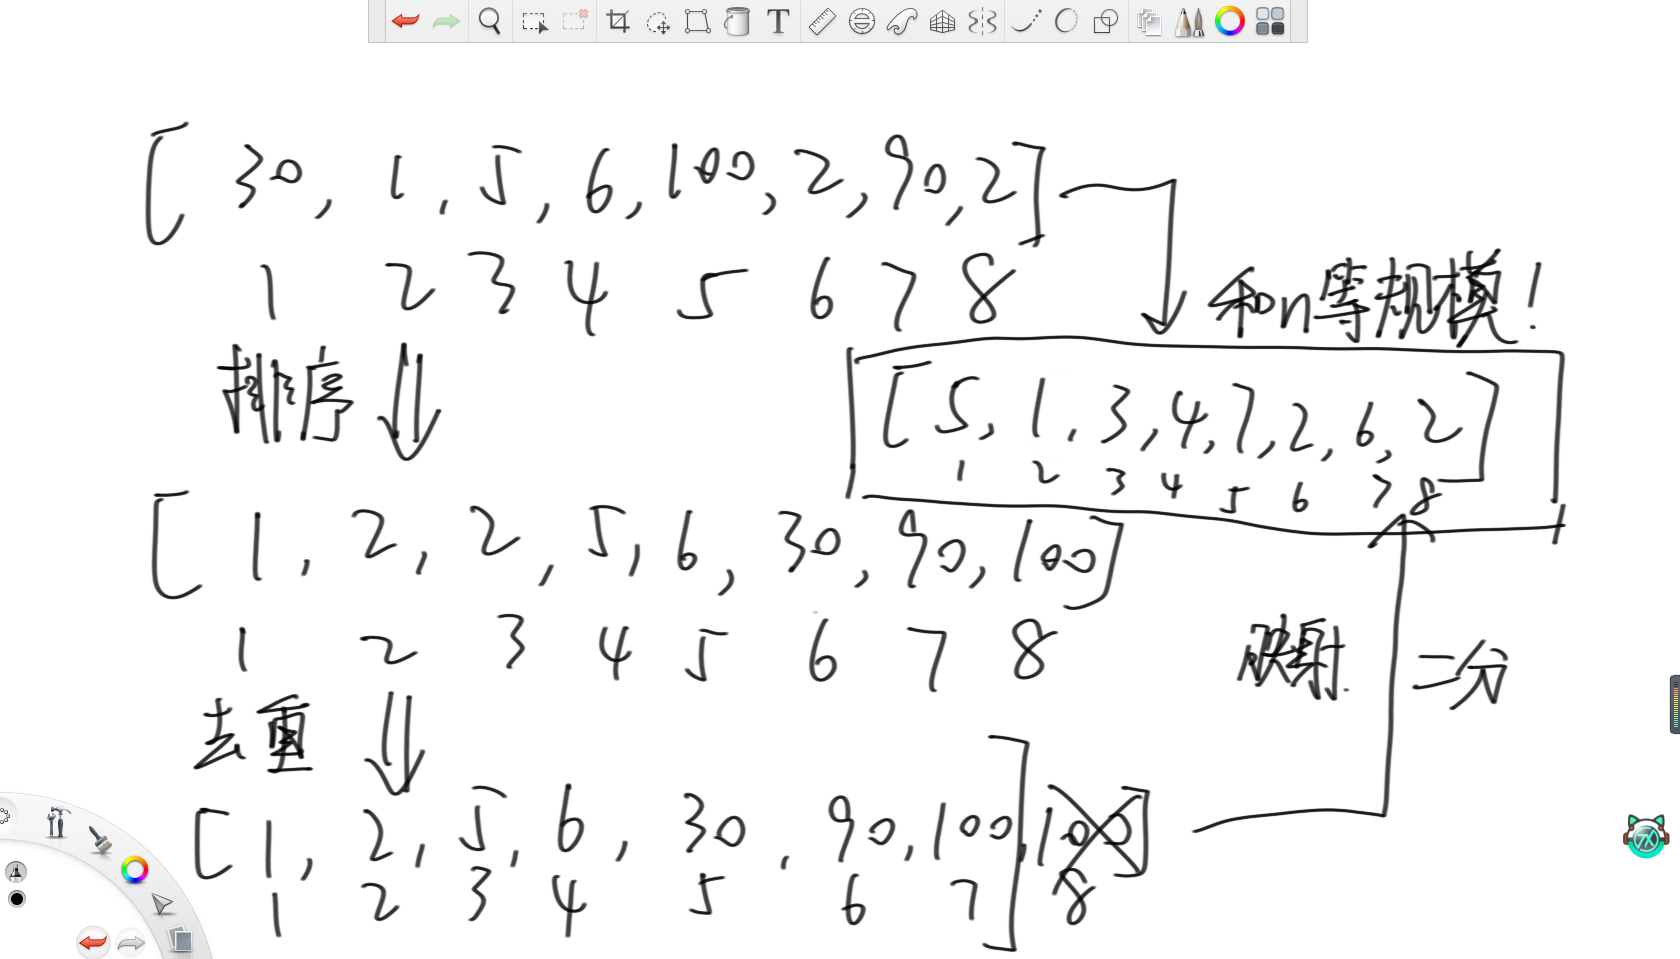 [30, 1, 5, 6, 100, 2, 90, 2]
1 2 3 4 5 6 7 8
和n等规模!
排序
[5, 1, 3, 4, 7, 2, 6, 2]
1 2 3 4 5 6 7 8
[1, 2, 2, 5, 6, 30, 90, 100]
1 2 3 4 5 6 7 8
映射 二分
去重
[1, 2, 5, 6, 30, 90, 100], 100]
1 2 3 4 5 6 7 8